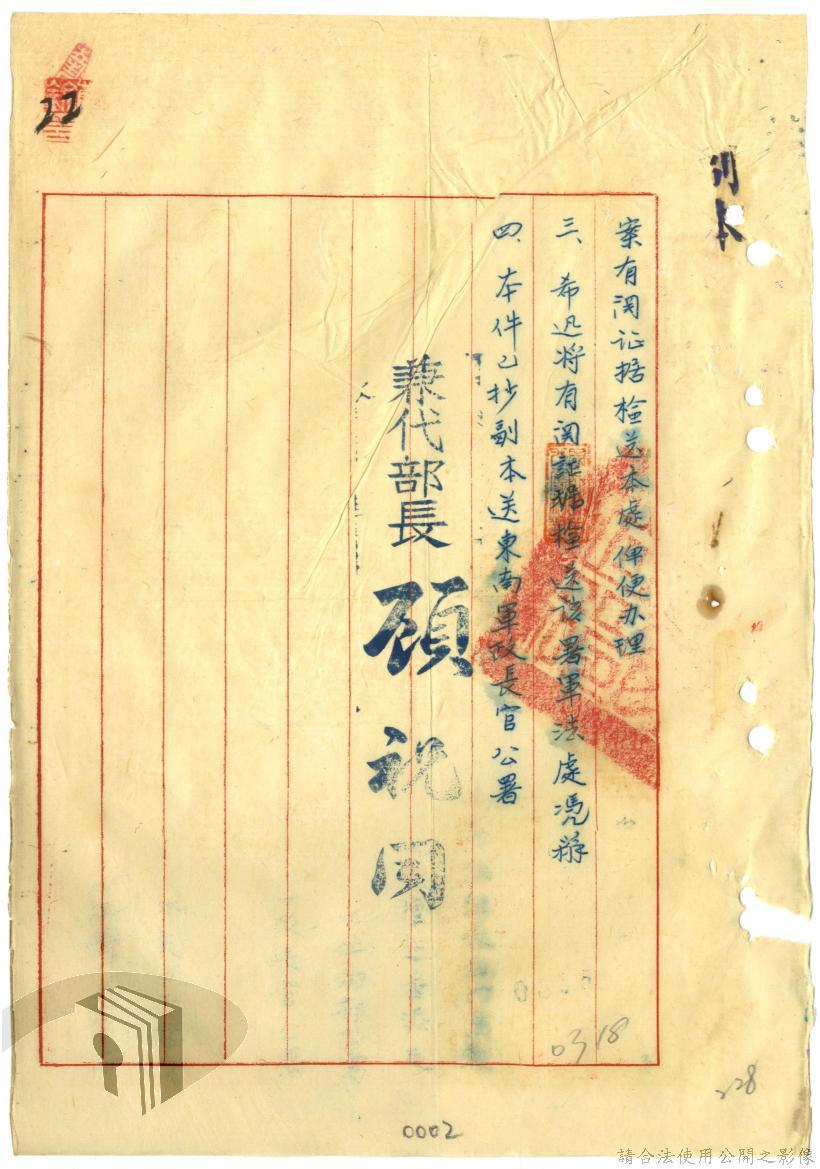 22
副本
案有関证据检送本處俾便办理
三、希迅将有関証据检送该署軍法處憑辦
四、本件已抄副本送東南軍政長官公署
兼代部長 顧祝同
0318
228
0002
請合法使用公開之影像